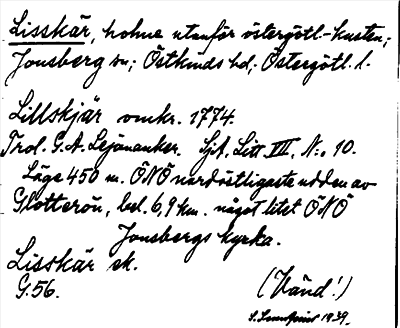 Lisskär, holme utanför östergötl-kusten;
Jonsberg sn; Östkinds hd; Östergötl. l.
Lillskjär omkr. 1774.
Trol. G. A. Lejonanker. SjA, Litt. III, N:o 10.
Läge 450 m. ÖNÖ nordöstligaste udden av
Glotterön, bel. 6,9 km. något litet ÖNÖ
Jonsbergs kyrka.
Lisskär ek.
G:56.
(Vänd!)
1939.